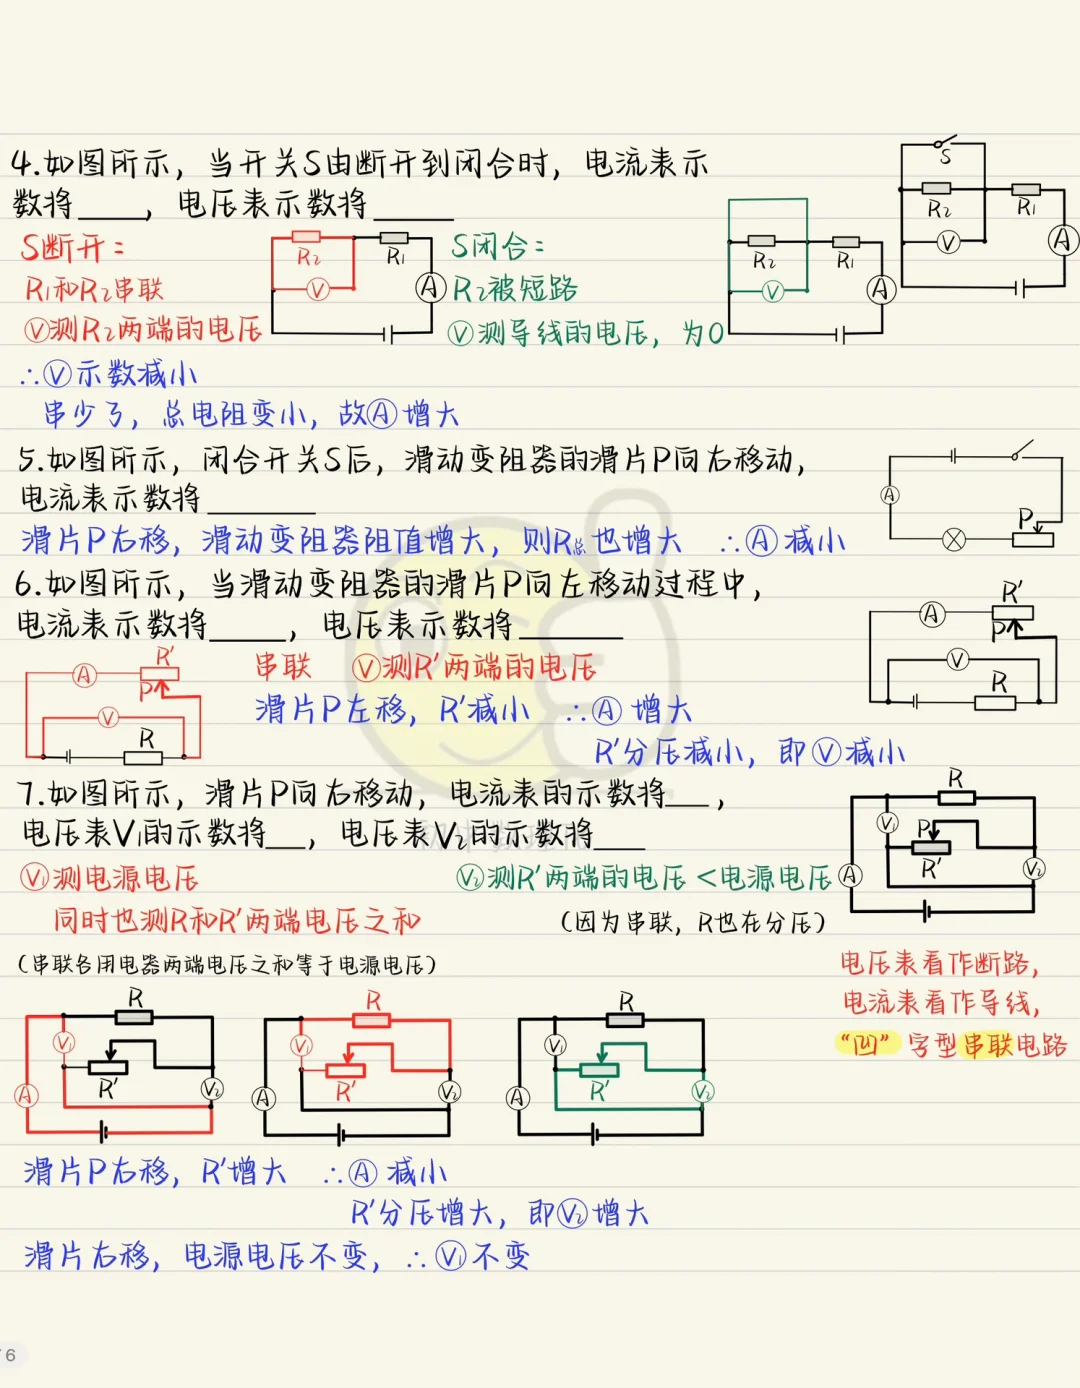 4.如图所示，当开关S由断开到闭合时，电流表示
数将____，电压表示数将_____
S断开：
R1和R2串联
Ⓥ测R2两端的电压
R2
R1
V
A
S闭合：
R2被短路
Ⓥ测导线的电压，为0
R2
R1
V
A
S
R2
R1
V
A
∴Ⓥ示数减小
串少了，总电阻变小，故Ⓐ增大
5.如图所示，闭合开关S后，滑动变阻器的滑片P向右移动，
电流表示数将_______
滑片P右移，滑动变阻器阻值增大，则R总也增大 ∴Ⓐ减小
A
P
6.如图所示，当滑动变阻器的滑片P向左移动过程中，
电流表示数将_____，电压表示数将_______
串联 Ⓥ测R′两端的电压
滑片P左移，R′减小 ∴Ⓐ增大
R′分压减小，即Ⓥ减小
A
R′
P
V
R
A
R′
P
V
R
7.如图所示，滑片P向右移动，电流表的示数将___，
电压表V1的示数将___，电压表V2的示数将____
V1测电源电压
同时也测R和R′两端电压之和
（串联各用电器两端电压之和等于电源电压）
V2测R′两端的电压<电源电压
（因为串联，R也在分压）
R
V1
P
R′
A
V2
电压表看作断路，
电流表看作导线，
“凹”字型串联电路
R
V1
R′
A
V2
R
V1
R′
A
V2
R
V1
R′
A
V2
滑片P右移，R′增大 ∴Ⓐ减小
R′分压增大，即V2增大
滑片右移，电源电压不变，∴V1不变
6